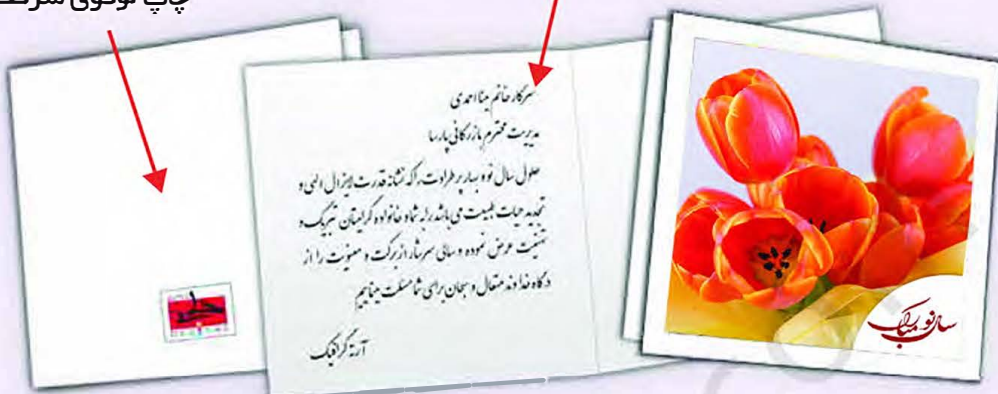 چاپ لوگوی شرکت
سرکار خانم مینا احمدی
مدیریت محترم بازرگانی پارسا
حلول سال نو و بهار پر طراوت را که نشانه قدرت لایزال الهی و
تجدید حیات طبیعت می باشد را به شما و خانواده گرامیتان تبریک و
تهنیت عرض نموده و سالی سرشار از برکت و معنویت را از
درگاه خداوند متعال و سبحان برای شما مسئلت مینماییم
آرتا گرافیک
سال نو مبارک